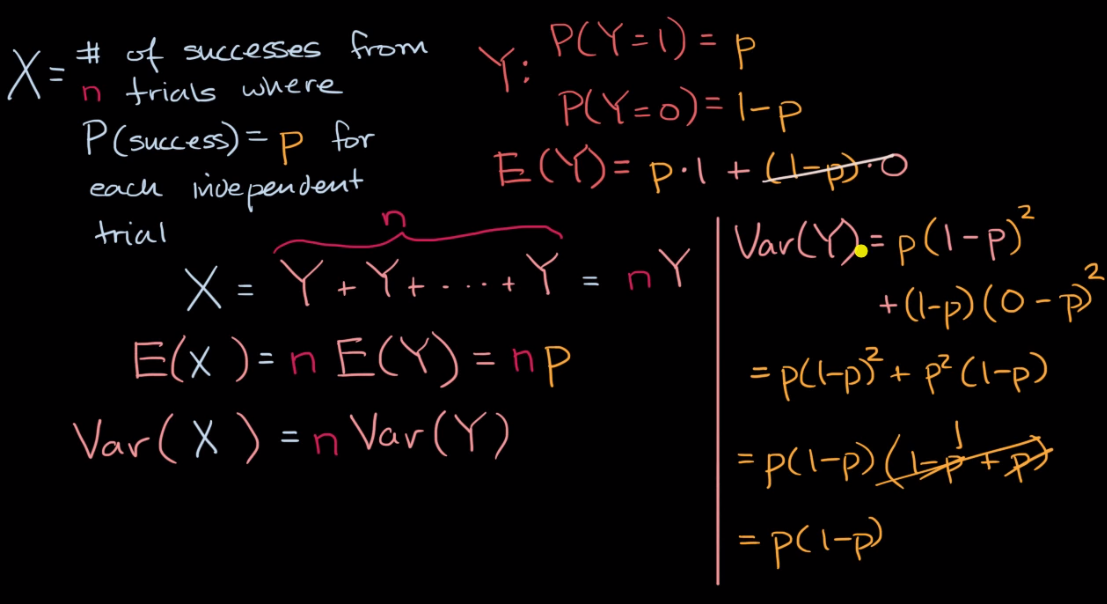 X = # of successes from
n trials where
P(success) = p for
each independent
trial
Y: P(Y=1) = p
P(Y=0) = 1-p
E(Y) = p·1 + (1-p)·0
n
X = Y + Y + ... + Y = nY
E(X) = n E(Y) = np
Var(X) = n Var(Y)
Var(Y) = p(1-p)²
+ (1-p)(0-p)²
= p(1-p)² + p²(1-p)
1
= p(1-p)(1-p+p)
= p(1-p)